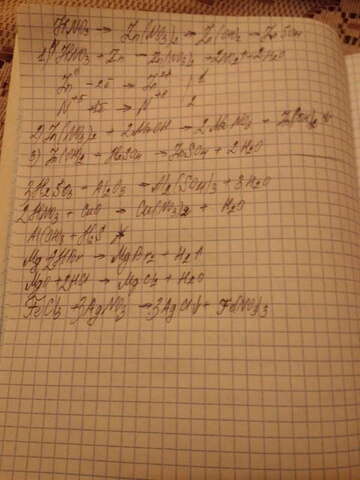 HNO₃ → Zn(NO₃)₂ → Zn(OH)₂ → ZnSO₄
1) 4HNO₃ + Zn → Zn(NO₃)₂ + 2NO₂↑ + 2H₂O
Zn⁰ - 2e → Zn⁺² | 1
N⁺⁵ + 1e → N⁺⁴ | 2
2) Zn(NO₃)₂ + 2NaOH → 2NaNO₃ + Zn(OH)₂
3) Zn(OH)₂ + H₂SO₄ → ZnSO₄ + 2H₂O
3H₂SO₄ + Al₂O₃ → Al₂(SO₄)₃ + 3H₂O
2HNO₃ + CaO → Ca(NO₃)₂ + H₂O
Al(OH)₃ + H₂S
Mg + 2HBr → MgBr₂ + H₂↑
MgO + 2HCl → MgCl₂ + H₂O
FeCl₃ + 3AgNO₃ → 3AgCl↓ + Fe(NO₃)₃